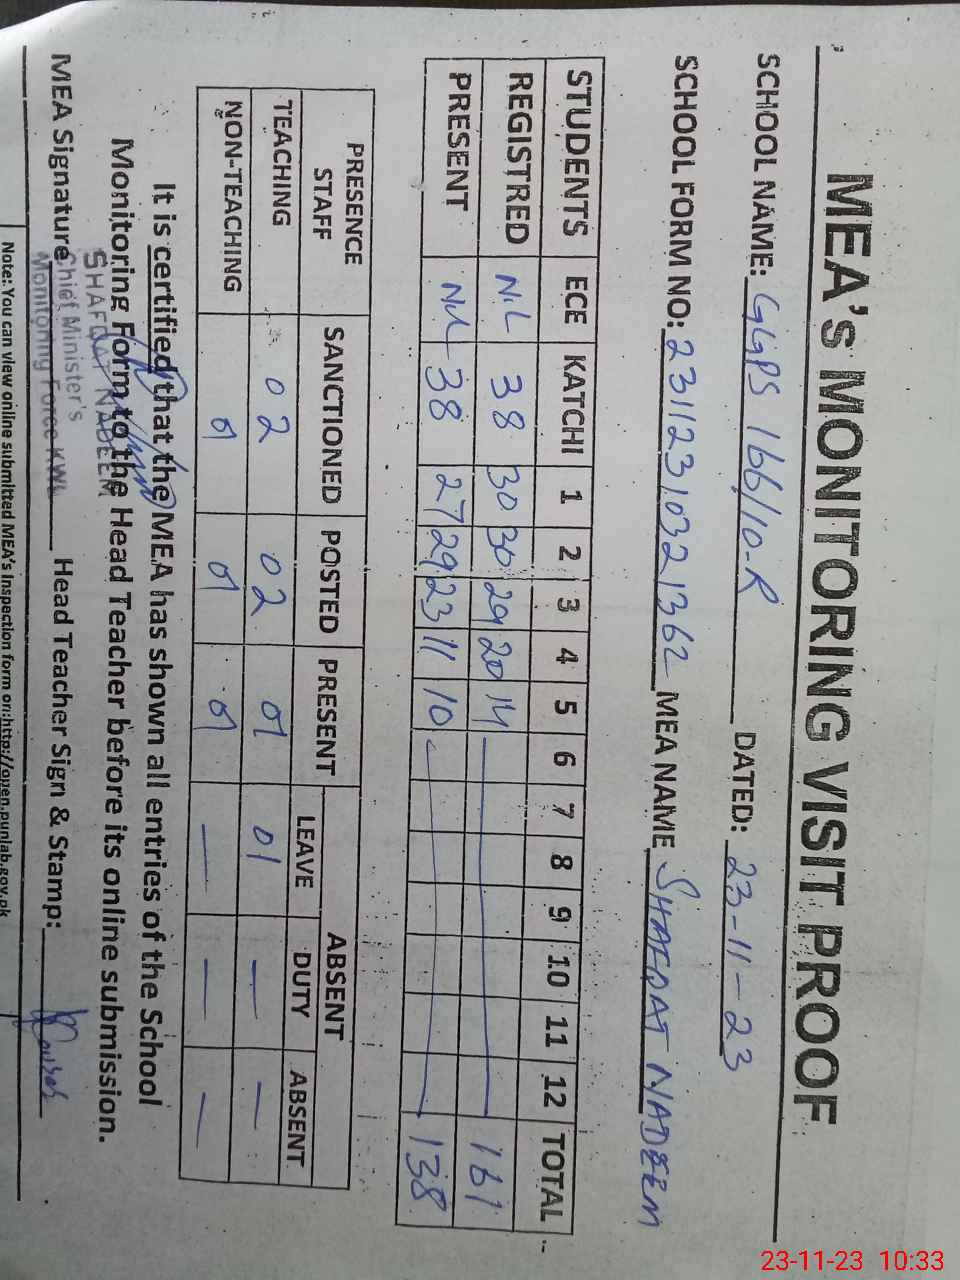 MEA's MONITORING VISIT PROOF
SCHOOL NAME: GGPS 166/10-R DATED: 23-11-23
SCHOOL FORM NO: 23112310321362 MEA NAME SHAFQAT NADEEM
STUDENTS ECE KATCHI 1 2 3 4 5 6 7 8 9 10 11 12 TOTAL
REGISTRED NIL 38 30 30 29 20 14 161
PRESENT NIL 38 27 29 23 11 10 138
PRESENCE STAFF SANCTIONED POSTED PRESENT ABSENT
LEAVE DUTY ABSENT
TEACHING 02 02 01 01 — —
NON-TEACHING 01 01 01 — — —
It is certified that the MEA has shown all entries of the School
Monitoring Form to the Head Teacher before its online submission.
SHAFQAT NADEEM
Chief Minister's
Monitoring Force KWL
MEA Signature Head Teacher Sign & Stamp:
Note: You can view online submitted MEA's Inspection form on:http://open.punjab.gov.pk
23-11-23 10:33